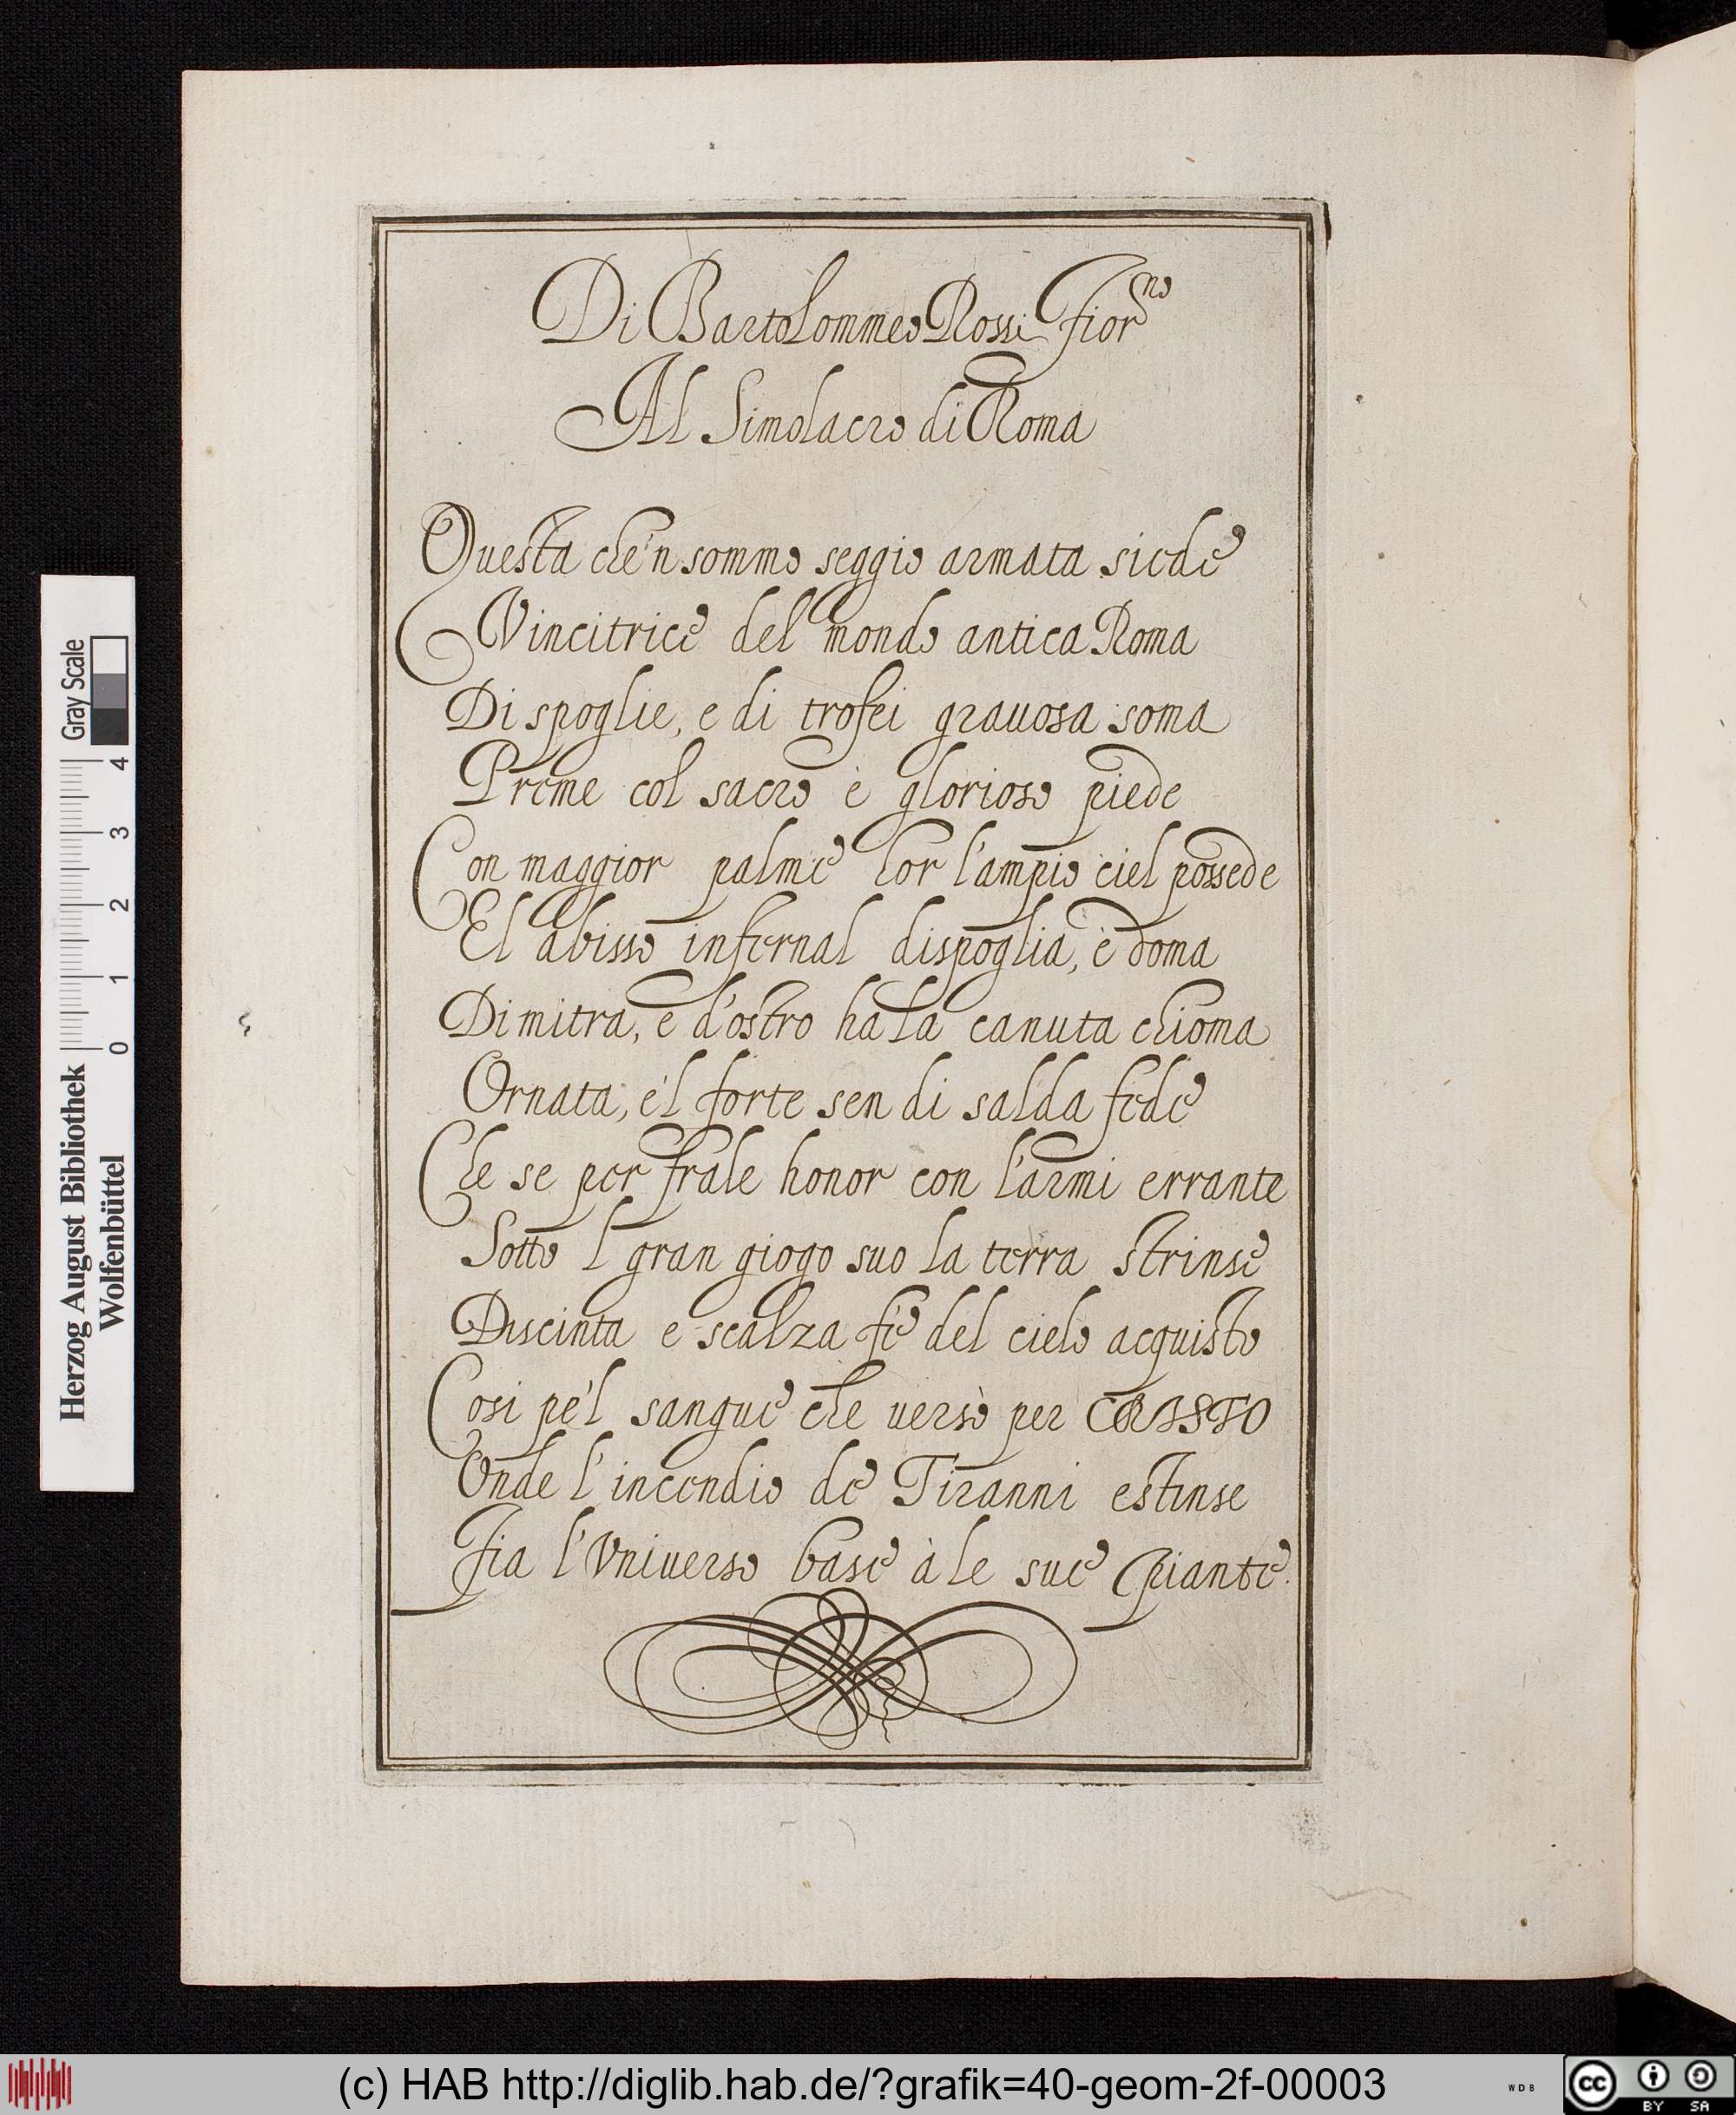 Di Bartolommeo Rossi Fior.no
Al Simolacro di Roma
Questa che'n sommo seggio armata siede
Vincitrice del mondo antica Roma
Di spoglie, e di trofei grauosa soma
Preme col sacro è glorioso piede
Con maggior palme hor l'ampio ciel possede
El abisso infernal dispoglia, è doma
Di mitra, e d'ostro ha la canuta chioma
Ornata, e'l forte sen di salda fede
Che se per frale honor con l'armi errante
Sotto l gran giogo suo la terra strinse
Discinta e scalza fe del cielo acquisto
Cosi pe'l sangue che uersò per CRISTO
Onde l'incendio de Tiranni estinse
Fia l'Vniuerso base à le sue piante.
Gray Scale
0 1 2 3 4
Herzog August Bibliothek
Wolfenbüttel
(c) HAB http://diglib.hab.de/?grafik=40-geom-2f-00003
WDB
cc BY SA